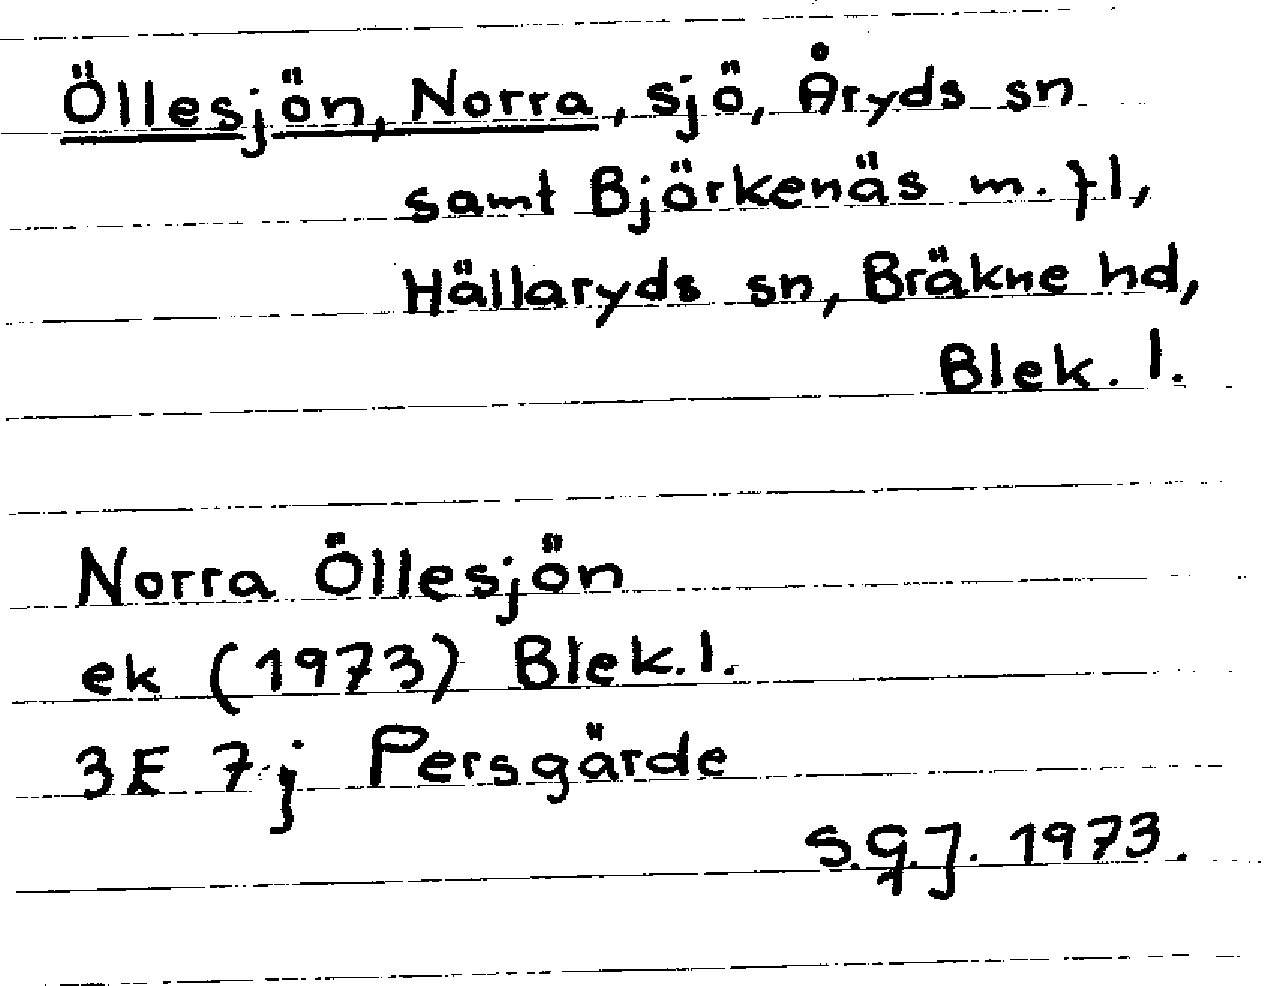 Öllesjön, Norra, sjö, Åryds sn
samt Björkenäs m. fl,
Hällaryds sn, Bräkne hd,
Blek. l.
Norra Öllesjön
ek (1973) Blek. l.
3E 7j Persgärde
S.G.J. 1973.